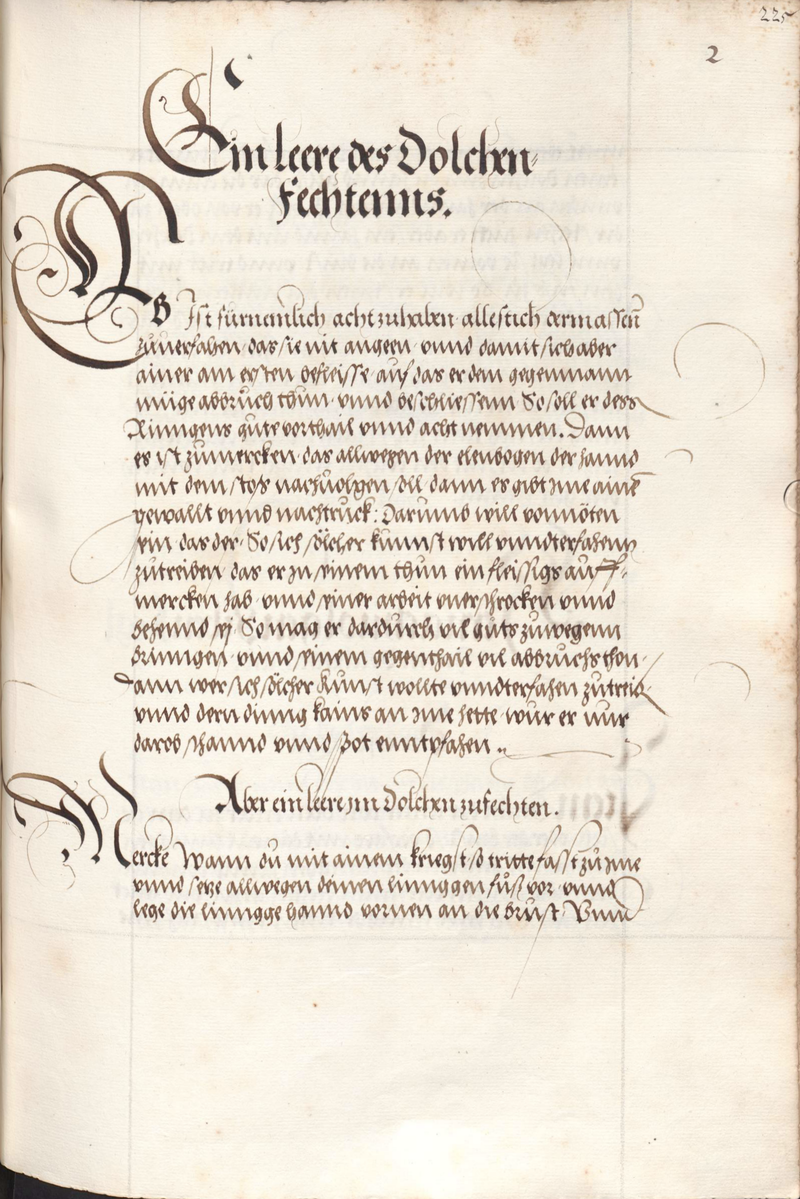 225
2
Ein leere des Dolchen-
Fechtenns.
Es Ist fürnemlich acht zuhaben alle stich dermassen
zuuerfahen das sie nit angeen vnnd damit sich aber
ainer am ersten befleisse auf das er dem gegenmann
müge abbruch thun vnnd beschliessenn So soll er dess
Rinngens gute vorthail vnnd acht nemmen. Dann
es ist zumercken das allwegen der elenbogen der hannd
mit dem stoß nachuolgen soll dann es gibt jme ainen
gewallt vnnd nachtruck: Darumb will vonnöten
sein das der So sich sölcher kunnst will vnndterfahenn
zutreiben das er jn seinem thun ein fleissigs auff-
mercken hab vnnd seiner arbeit vnerschrocken vnnd
behennd sej So mag er dardurch vil guts zuwegenn
brinngen vnnd seinem gegenthail vil abbruchs thon
Dann wer sich sölcher Kunst wollte vnndterfahen zutreib
vnnd dern dinng kains an jme hette wur er nur
darob schannd vnnd spot enntpfahen.
Aber ein leere jm Dolchen zufechten.
Mercke Wann du mit ainem kriegst so tritte fasst zu jme
vnnd setze allwegen deinen linnggen fuß vor vnnd
lege die linngge hannd vornen an die brust Vnnd